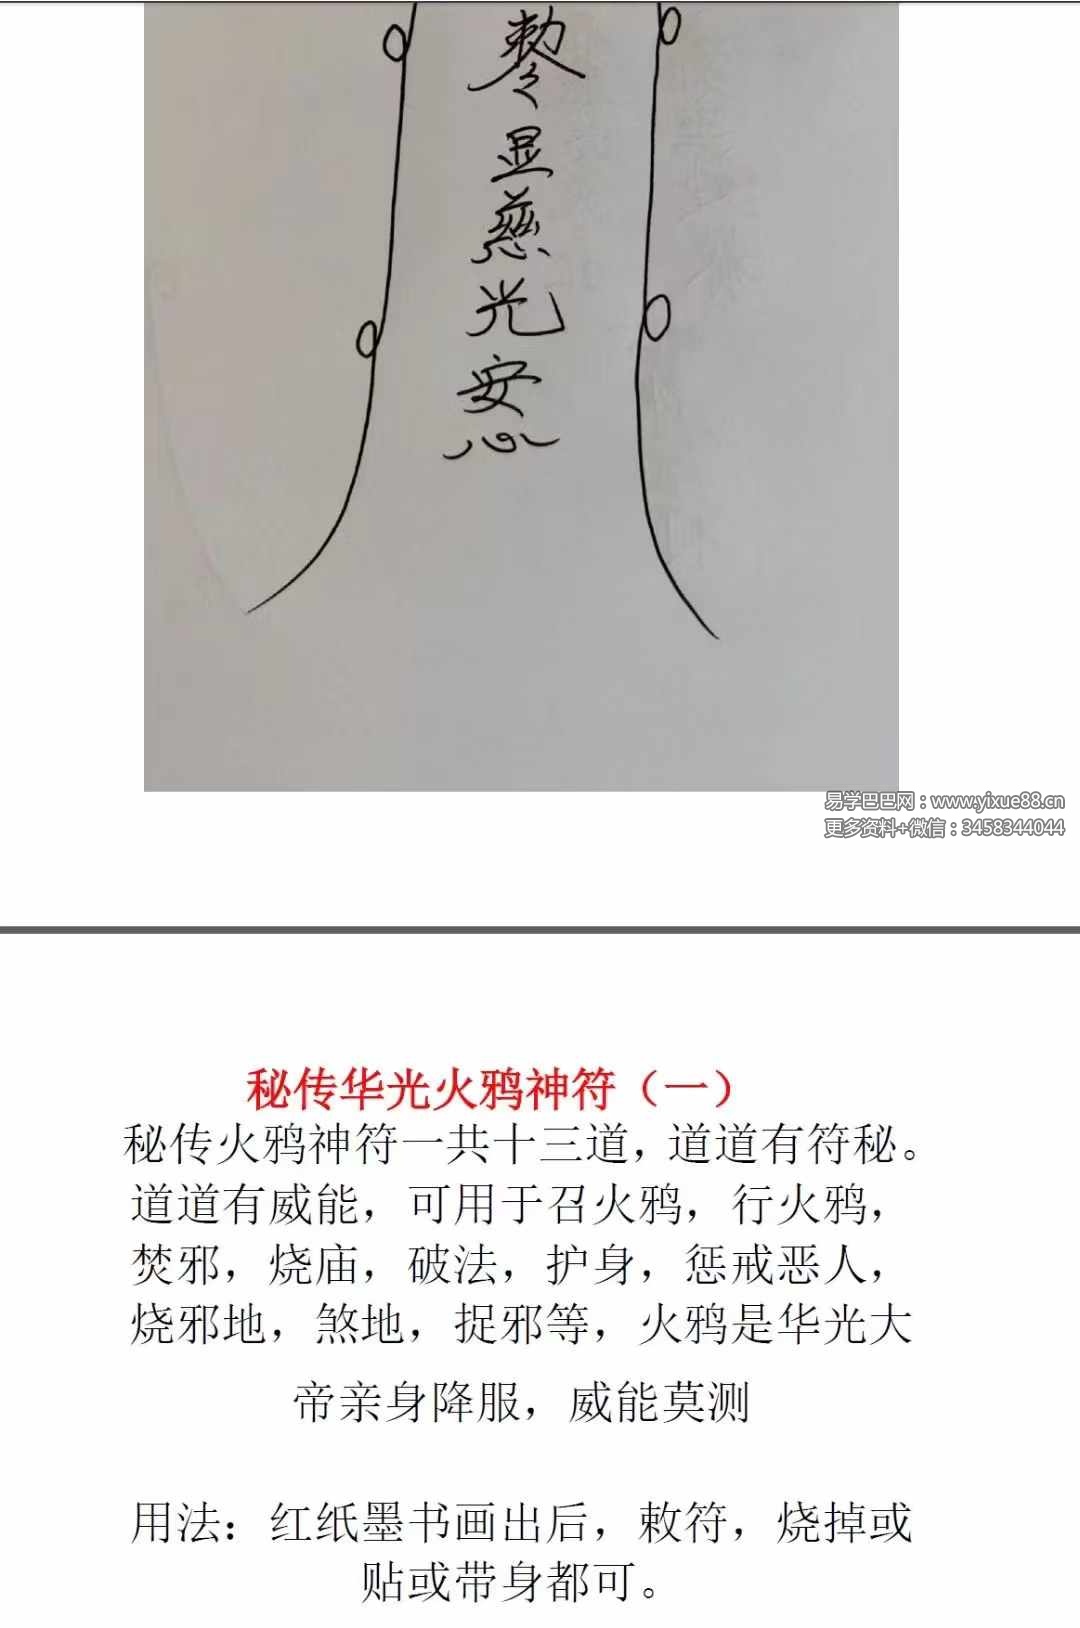 敕令
显
慈
光
安
心
易学巴巴网：www.yixue88.cn
更多资料+微信：3458344044
秘传华光火鸦神符（一）
秘传火鸦神符一共十三道，道道有符秘。
道道有威能，可用于召火鸦，行火鸦，
焚邪，烧庙，破法，护身，惩戒恶人，
烧邪地，煞地，捉邪等，火鸦是华光大
帝亲身降服，威能莫测
用法：红纸墨书画出后，敕符，烧掉或
贴或带身都可。